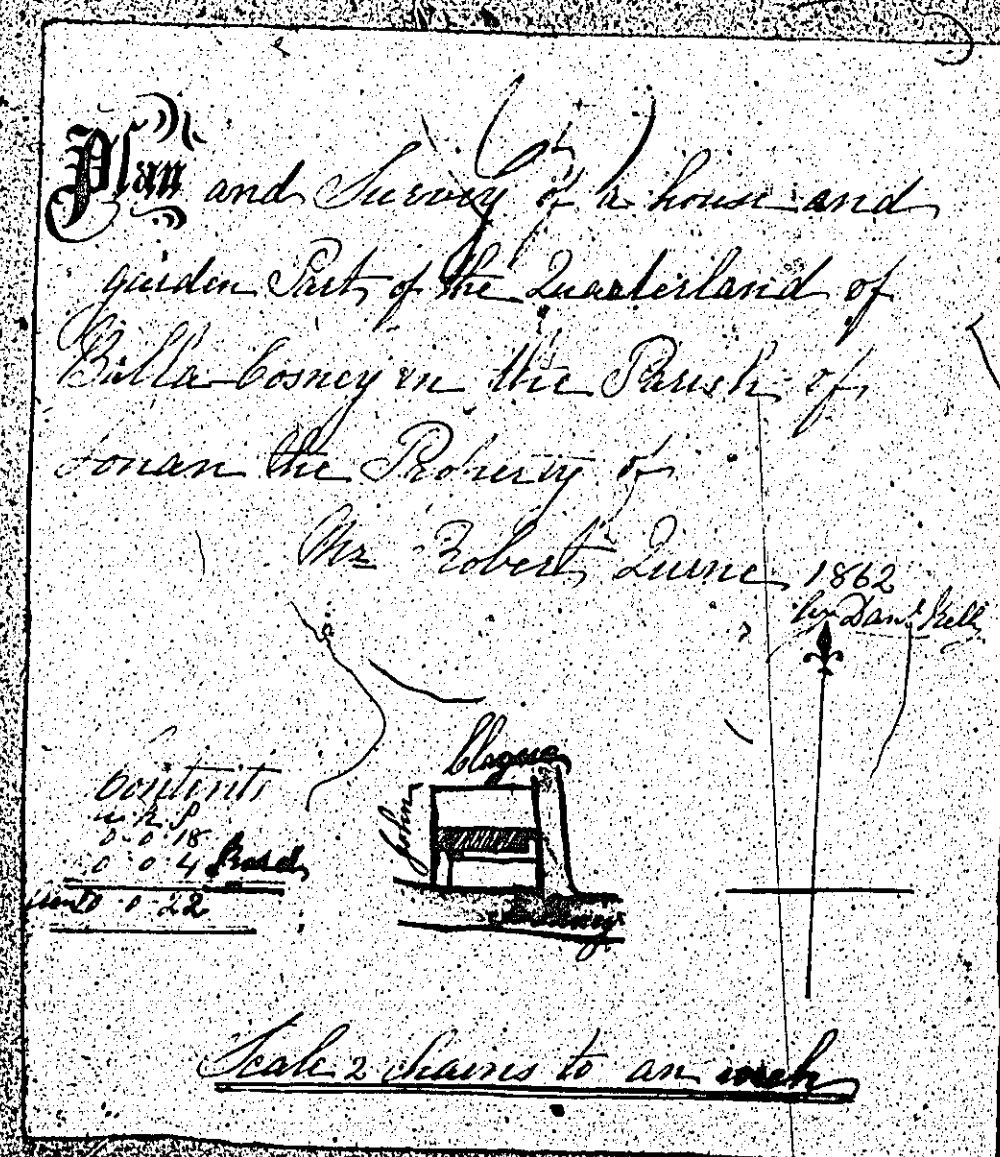 Plan and Survey of a house and
garden Part of the Quarterland of
Balla-Cosney in the Parish of
Lonan the Property of
Mr Robert Quine 1862
by Danl Kelly
Contents
a R P
0 0 18
0 0 4 Road
0 0 22
John
Clague
Scale 2 chains to an inch